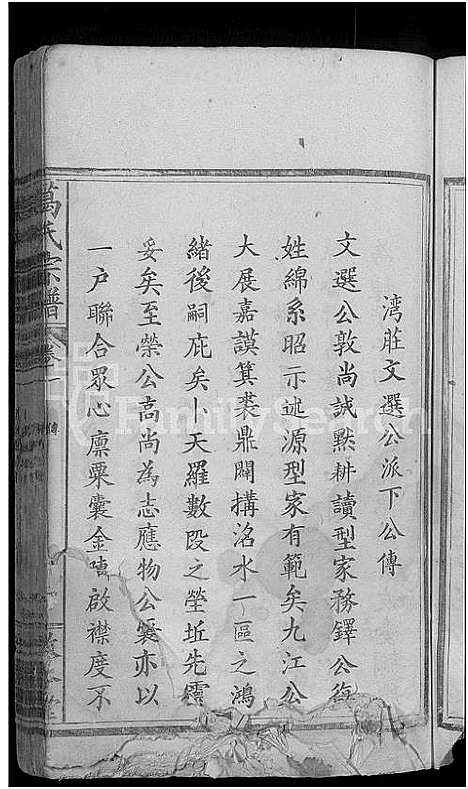 湾莊文選公派下公傳
文選公敦尚誠默耕讀型家務鐸公復
姓綿系昭示述源型家有範矣九江公
大展嘉謨箕裘鼎闢搆洺水一區之鴻
緒後嗣庇矣卜天羅數段之塋坵先靈
妥矣至榮公高尚為志應物公襄亦以
一户聯合眾心廪粟囊金啟襟度不
葛氏宗譜
卷一
傳
FamilySearch